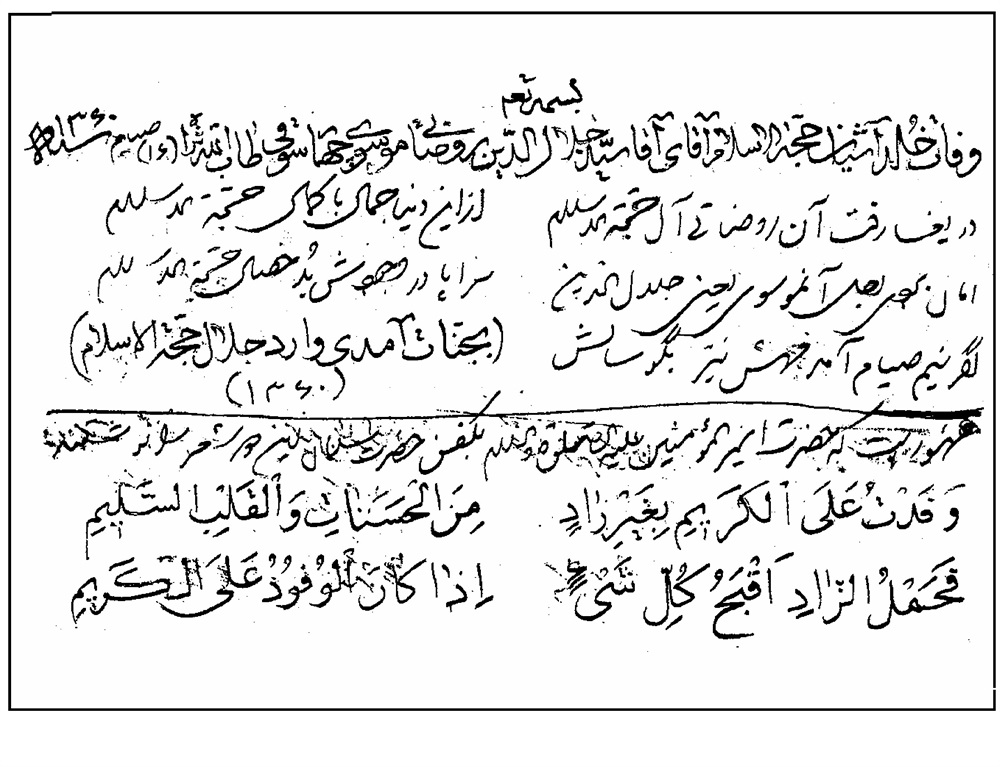 بسمه تعالی
وفات خلد آشیان حجة الاسلام آقای آقا سید جلال الدین روضاتی موسوی چهارسوقی طاب ثراه (۱۶) صیام ۱۳۶۰
دریغا رفت آن روضاتی آل حجة الاسلام از این دنیا جمال با کمال حجة الاسلام
امان موسوی یعنی جلال الدین سراپا در بُد خصال حجة الاسلام
گر نیم صیام آمد نیز بگو سالش (بجنات آمدی وارد جلال حجة الاسلام)
(۱۳۶۰)
مشهور است که حضرت امیرالمؤمنین علیه الصلوة والسلام بکفن حضرت سلمان این دو شعر را
وَفَدْتُ عَلَی الکَریمِ بِغَیْرِ زادٍ مِنَ الْحَسَناتِ وَالْقَلْبِ السَّلیمِ
فَحَمْلُ الزّادِ اَقْبَحُ کُلِّ شَیْءٍ اِذا کانَ الْوُفُودُ عَلَی الکَریمِ